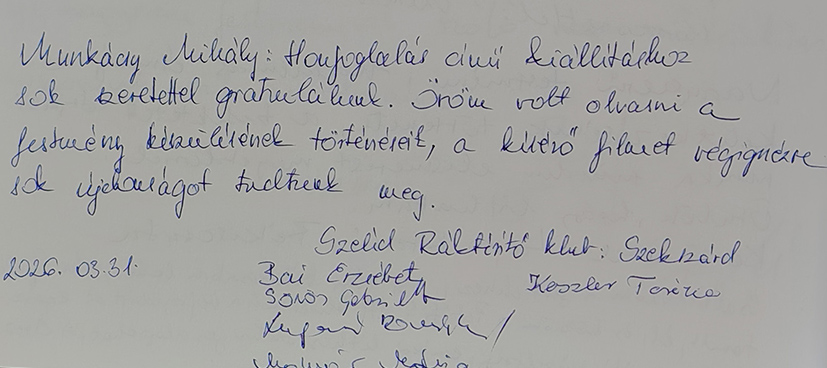 Munkácsy Mihály: Honfoglalás című kiállításhoz
sok szeretettel gratulálunk. Öröm volt olvasni a
festmény készülésének történéseit, a kísérő filmet végignézve
sok újdonságot tudtunk meg.
Szelíd klub. Szekszárd
2026. 03.31.
Bai Erzsébet
Keszler Terézia
Soós